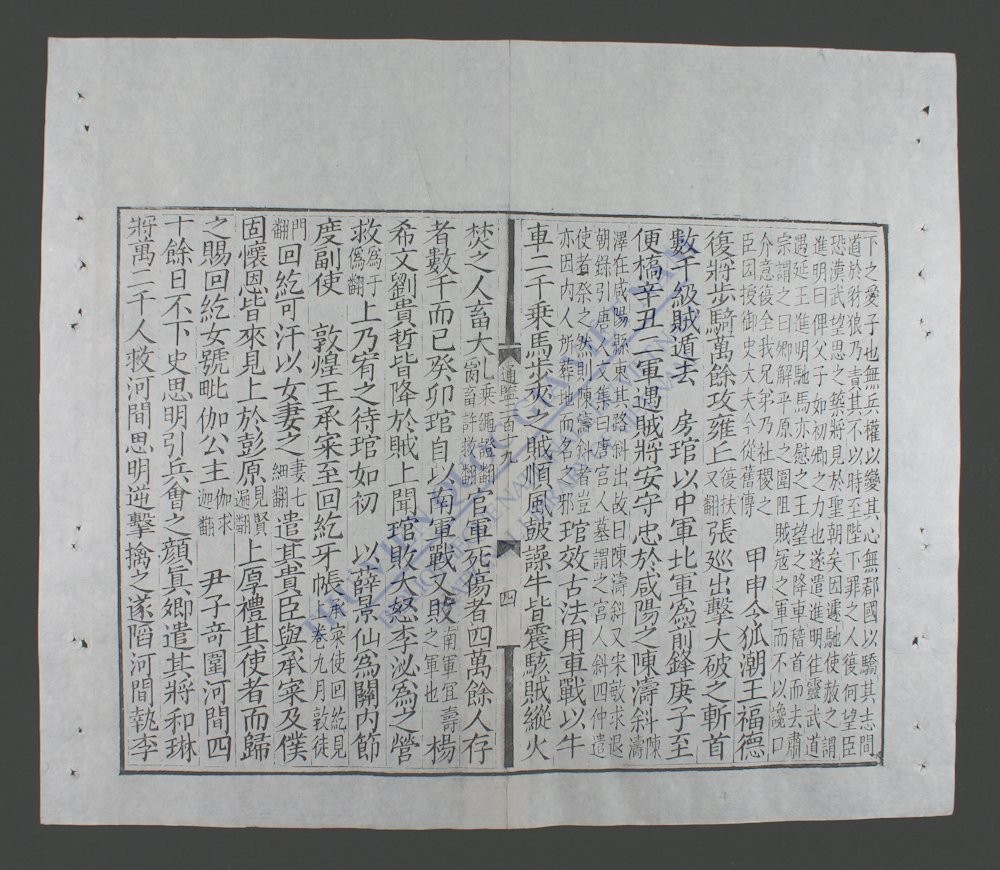 下之愛子也無兵權以變其心無郡國以驕其志間
道於豺狼乃責其不以時至陛下罪之人復何望臣
恐漢武望思之築將見於聖朝矣因遽馳使赦之謂
進明曰俾父子如初卿之力也遂遣進明往靈武道
遇延王進明馳馬亦慰之王望之降車稽首而去肅
宗謂之曰卿解平原之圍阻賊寇之軍而不以讒口
介意復全我兄弟乃社稷之
臣因授御史大夫今從舊傳 甲申令狐潮王福德
復將步騎萬餘攻雍丘復扶又翻張巡出擊大破之斬首
數千級賊遁去 房琯以中軍北軍爲前鋒庚子至
便橋辛丑二軍遇賊將安守忠於咸陽之陳濤斜陳濤
澤在咸陽縣東其路斜出故曰陳濤斜又宋敏求退
朝録引唐人文集曰唐宮人墓謂之宮人斜四仲遣
使者祭之然則陳濤斜者豈
亦因内人所葬地而名之邪 琯效古法用車戰以牛
車二千乘馬步夾之賊順風鼓譟牛皆震駭賊縱火
通鑑二百十九 四
焚之人畜大亂乘繩證翻畜許救翻官軍死傷者四萬餘人存
者數千而已癸卯琯自以南軍戰又敗南軍宜壽之軍也楊
希文劉貴哲皆降於賊上聞琯敗大怒李泌爲之營
救爲于僞翻上乃宥之待琯如初 以薛景仙爲關内節
度副使 敦煌王承寀至回紇牙帳承寀使回紇見上卷九月敦徒
門翻回紇可汗以女妻之妻七細翻遣其貴臣與承寀及僕
固懷恩皆來見上於彭原見賢遍翻上厚禮其使者而歸
之賜回紇女號毗伽公主伽求迦翻 尹子奇圍河間四
十餘日不下史思明引兵會之顏眞卿遣其將和琳
將萬二千人救河間思明逆擊擒之遂陷河間執李
THƯ VIỆN QUỐC GIA VIỆT NAM